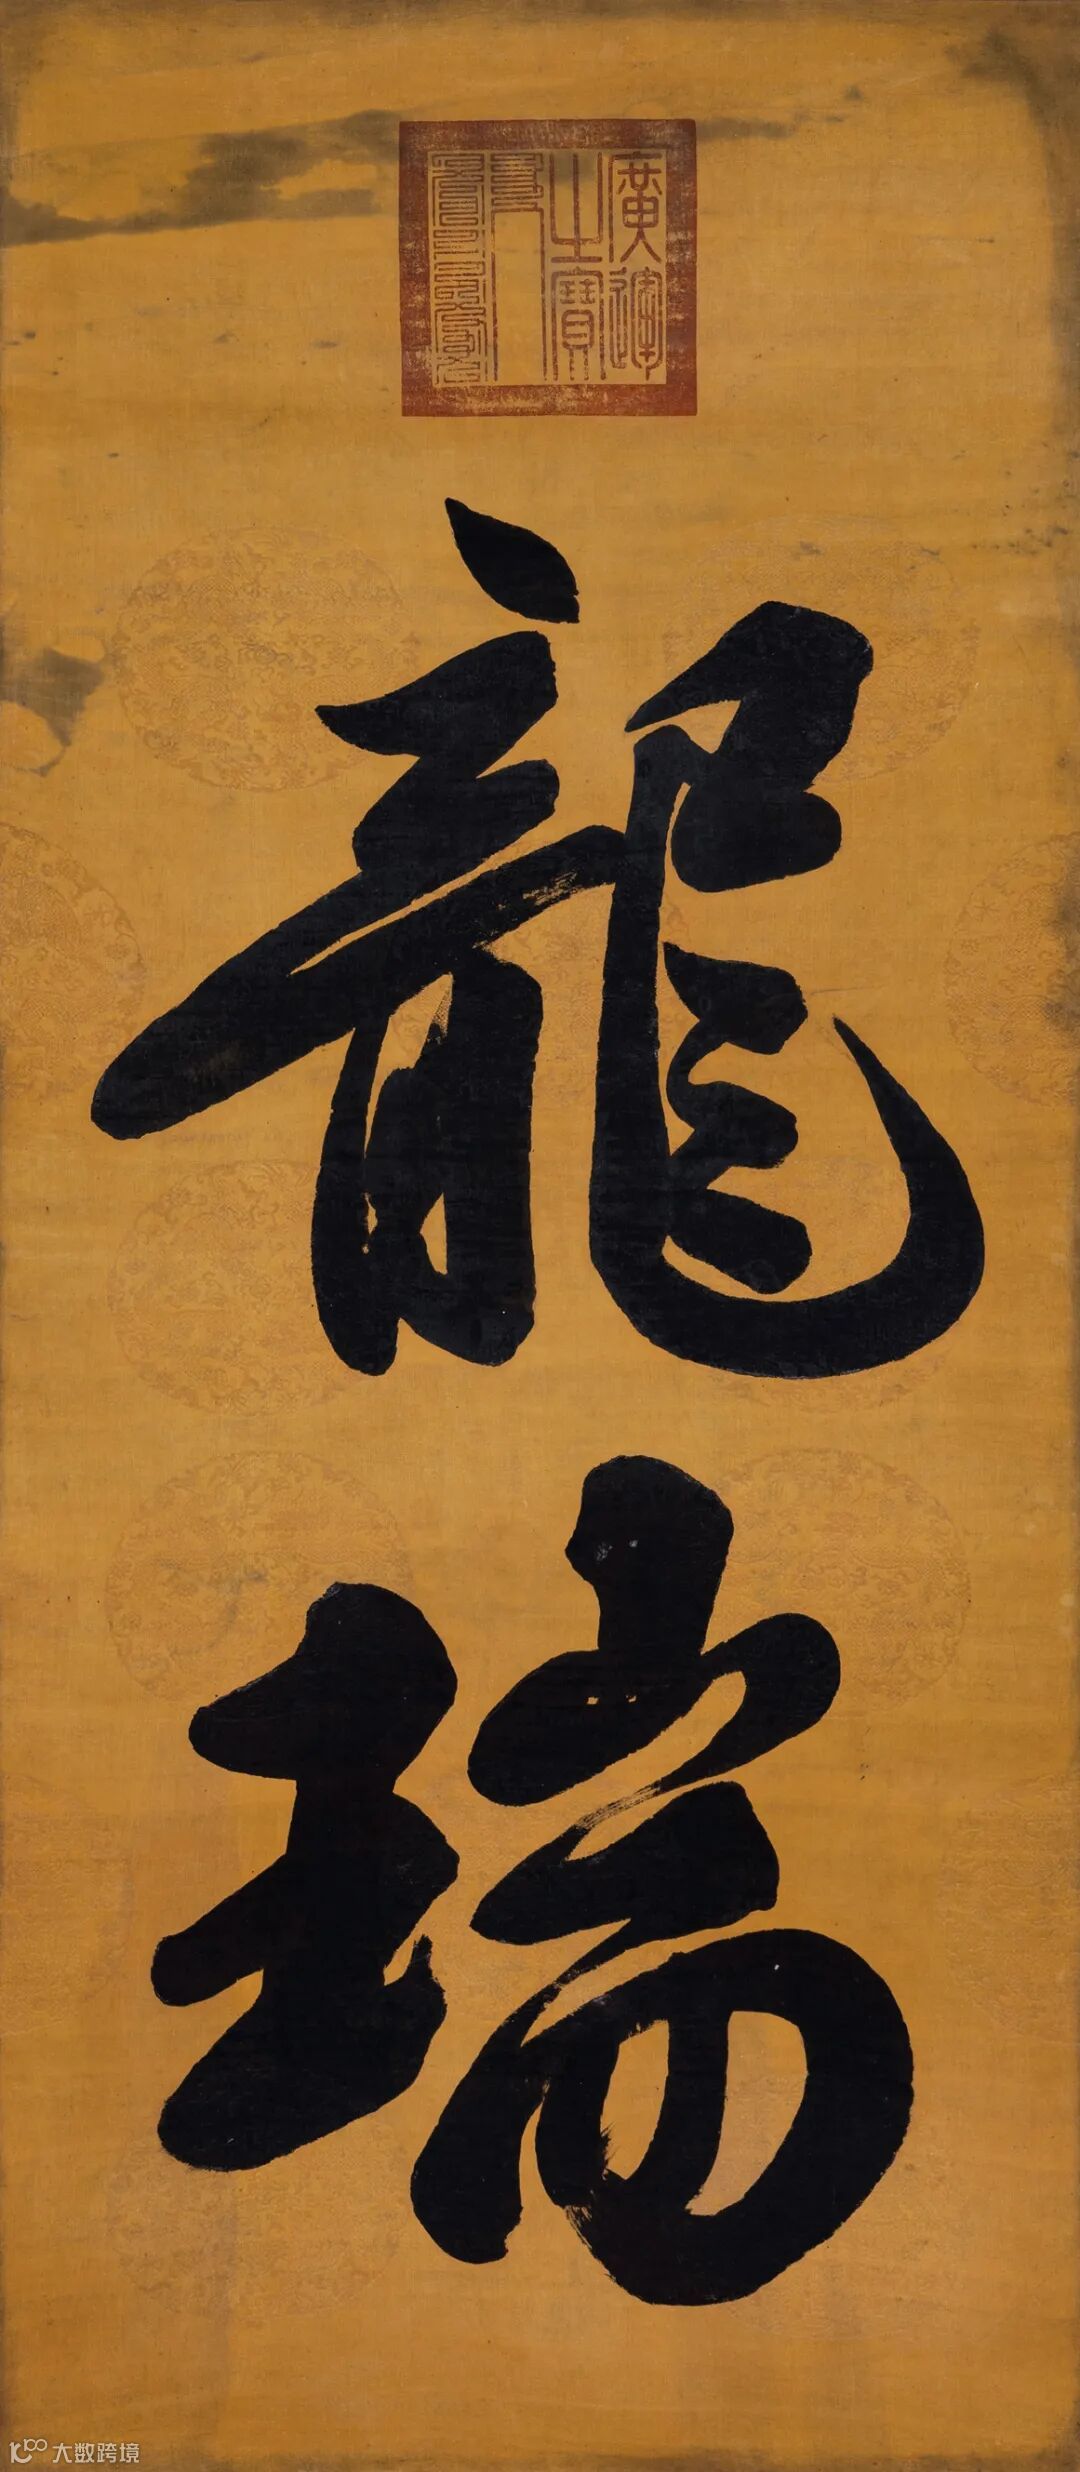 廣運之寶
龍
瑞
大数跨境